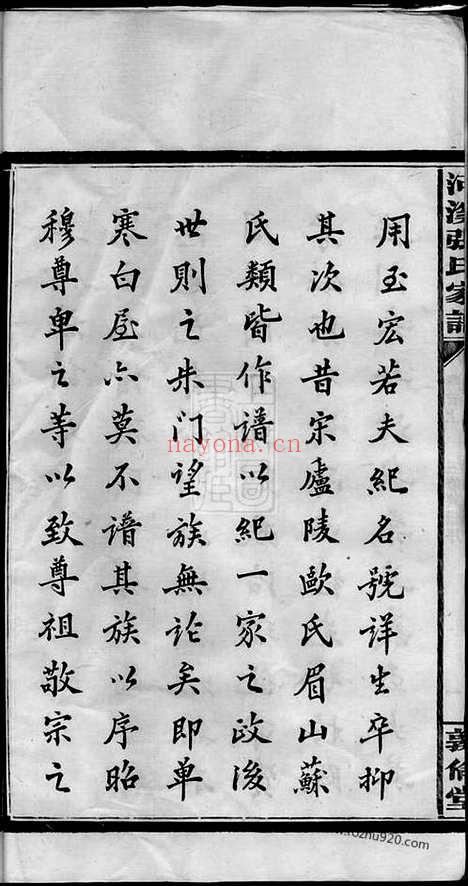 河溪張氏家譜
敦倫堂
用玉宏若夫紀名號詳生卒抑
其次也昔宋廬陵歐氏眉山蘇
氏類皆作譜以紀一家之政後
世則之朱門望族無論矣即單
寒白屋亦莫不譜其族以序昭
穆尊卑之等以致尊祖敬宗之
nayona.cn